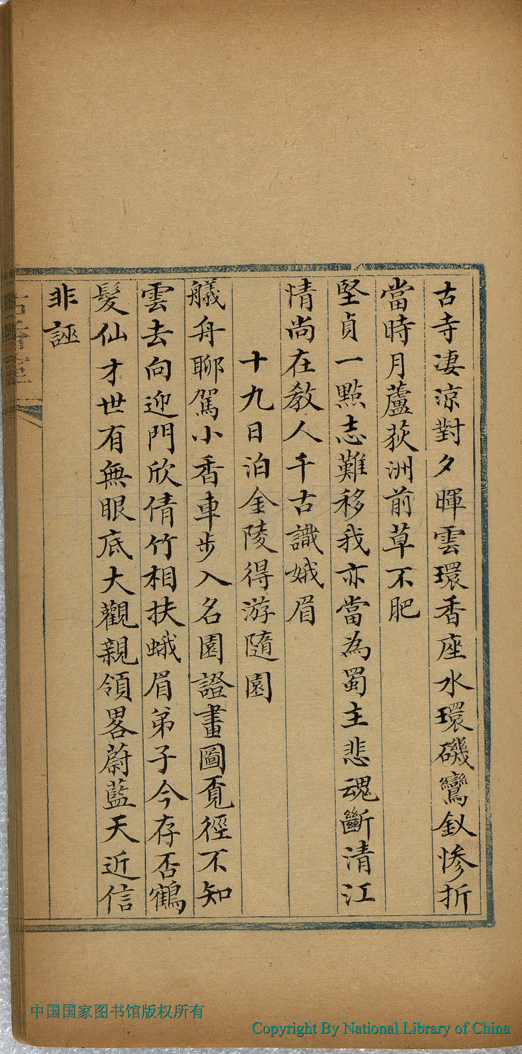 古寺凄涼對夕暉雲環香座水環磯鸞釵慘折
當時月蘆荻洲前草不肥
堅貞一點志難移我亦當為蜀主悲魂斷清江
情尚在教人千古識娥眉
十九日泊金陵得游隨園
艤舟聊駕小香車步入名園證畫圖覔徑不知
雲去向迎門欣倩竹相扶蛾眉弟子今存否鶴
髮仙才世有無眼底大觀親領畧蔚藍天近信
非誣
中国国家图书馆版权所有
Copyright By National Library of China